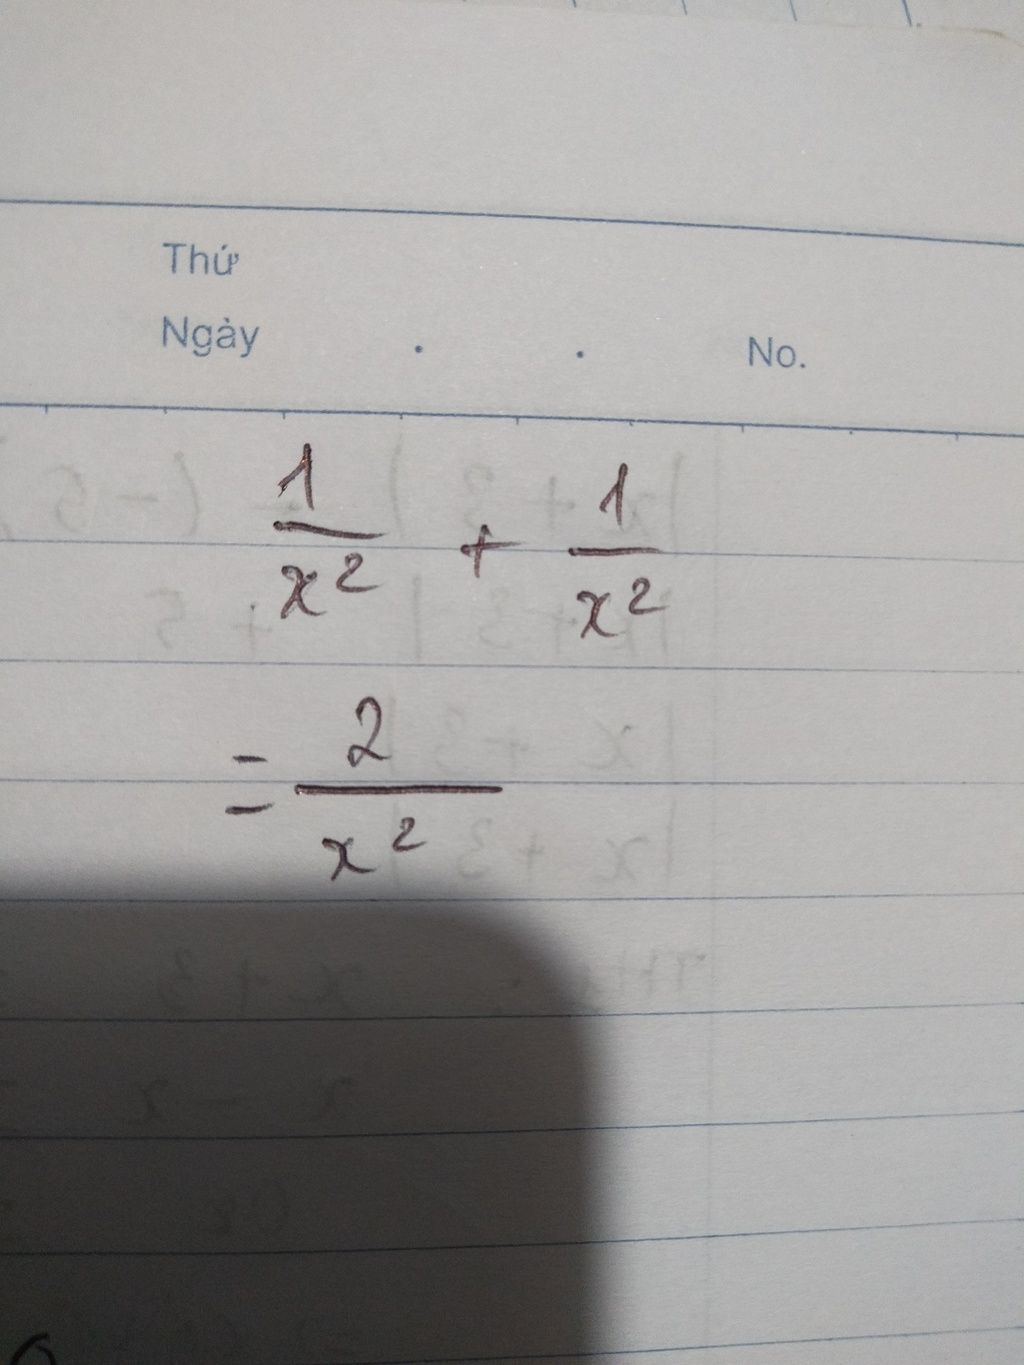 Thứ
Ngày . . No.
1/x² + 1/x²
= 2/x²